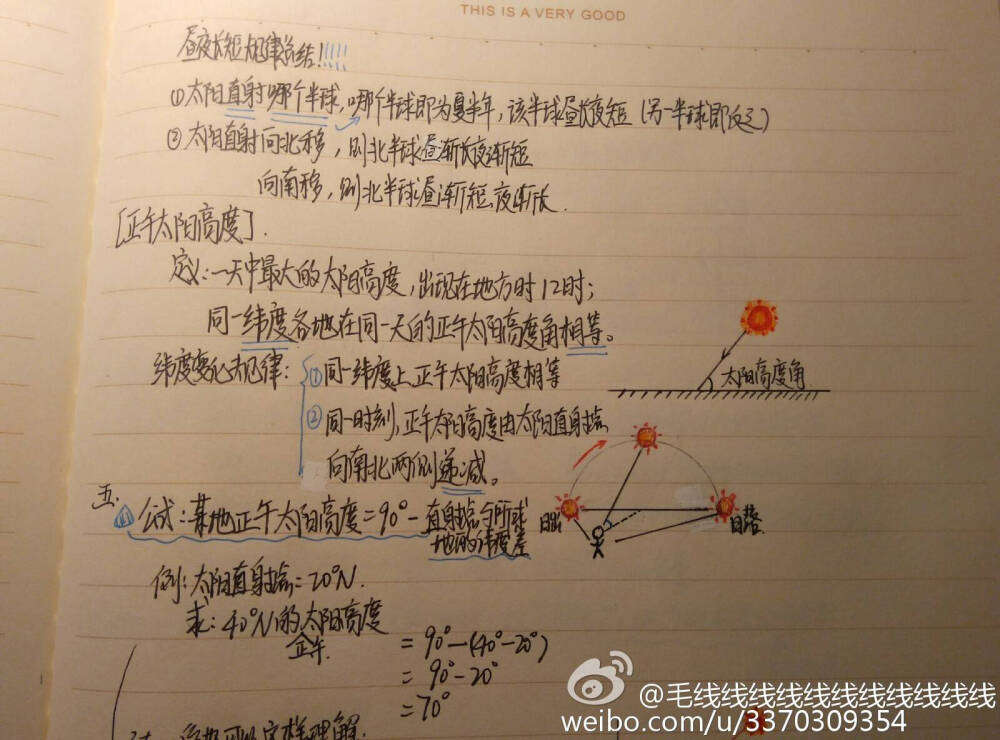 THIS IS A VERY GOOD
昼夜长短规律总结!!!!!
①太阳直射哪个半球,哪个半球即为夏半年,该半球昼长夜短(另一半球即反之)
②太阳直射向北移,则北半球昼渐长夜渐短
向南移,则北半球昼渐短夜渐长.
[正午太阳高度].
定义:一天中最大的太阳高度,出现在地方时12时;
同一纬度各地在同一天的正午太阳高度角相等。
纬度变化规律:①同一纬度上正午太阳高度相等
太阳高度角
②同一时刻,正午太阳高度由太阳直射点
向南北两侧递减。
五.
公式:某地正午太阳高度=90°-直射点与所求
地的纬度差
日出
日落
例:太阳直射点=20°N.
求:40°N的太阳高度
正午
=90°-(40°-20°)
=90°-20°
=70°
@毛线线线线线线线线线线线
weibo.com/u/3370309354